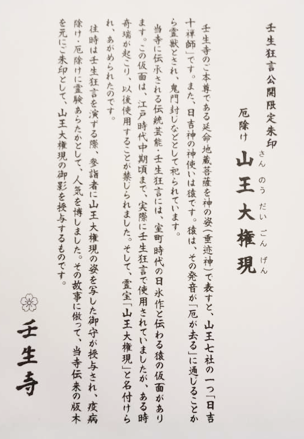 壬生狂言公開限定朱印
厄除け 山王大権現
さん のう だい ごん げん
壬生寺のご本尊である延命地蔵菩薩を神の姿(垂迹神)で表すと、山王七社の一つ「日吉
十禅師」です。また、日吉神の神使いは猿です。猿は、その発音が「厄が去る」に通じることか
ら霊獣とされ、鬼門封じなどとして祀られています。
当寺に伝承される伝統芸能・壬生狂言には、室町時代の日氷作と伝わる猿の仮面があり
ます。この仮面は、江戸時代中期頃まで、実際に壬生狂言で使用されていましたが、ある時
奇瑞が起こり、以後使用することが禁じられました。そして、霊宝「山王大権現」と名付けら
れ、あがめられたのです。
往時は壬生狂言を演ずる際、参詣者に山王大権現の姿を写した御守が授与され、疫病
除け・厄除けに霊験あらたかとして、人気を博しました。その故事に倣って、当寺伝来の版木
を元にご朱印として、山王大権現の御影を授与するものです。
壬生寺